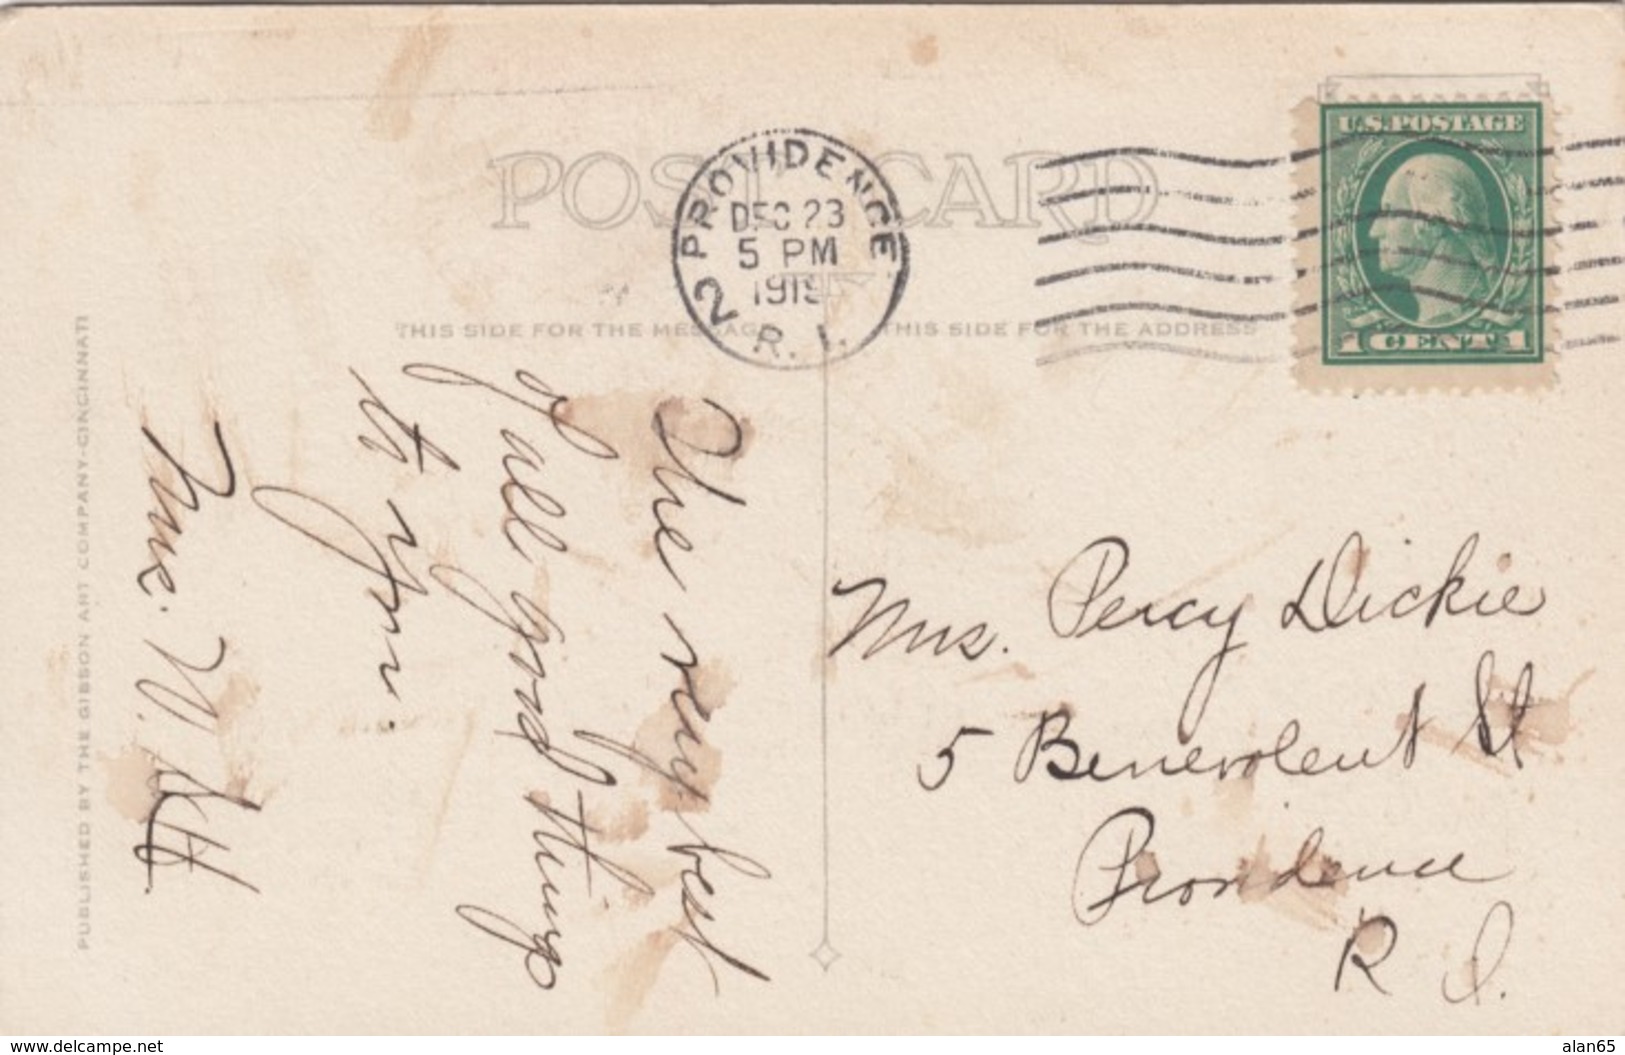 POST CARD
PROVIDENCE
DEC 23
5 PM
1919
2
R. I.
U.S. POSTAGE
1 CENT 1
THIS SIDE FOR THE MESSAGE
THIS SIDE FOR THE ADDRESS
The very best
of all good things
to you.
Mme. W.
Mrs. Percy Dickie
5 Benevolent St
Providence
R I.
PUBLISHED BY THE GIBSON ART COMPANY-CINCINNATI
www.delcampe.net
alan65